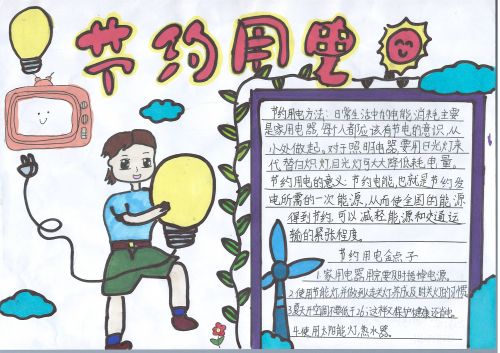 节约用电
节约用电方法：日常生活中的电能消耗主要
是家用电器，每个人都应该有节电的意识，从
小处做起。对于照明电器，要用日光灯来
代替白炽灯，日光灯可大大降低耗电量。
节约用电的意义：节约电能，也就是节约发
电所需的一次能源，从而使全国的能源
得到节约，可以减轻能源和交通运
输的紧张程度。
节约用电金点子
1.家用电器用完要及时拔掉电源。
2.使用节能灯，并做到人走关灯，养成及时关灯的习惯
3.夏天开空调不要低于26，这样又保护健康还省电。
4.使用太阳能灯，热水器。